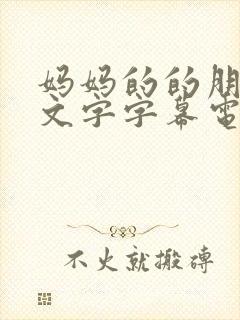 妈妈的的朋
文字字幕電
不火就搬磚